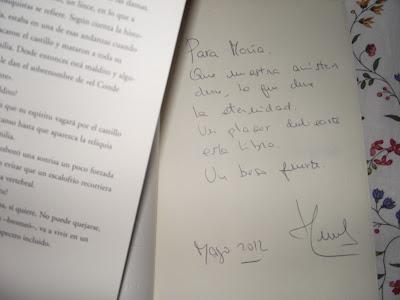 las damas,
un lince, en lo que a
quistas se refiere. Según cuenta la histo-
estaba en una de esas andanzas cuando
el castillo y mataron a toda su
milia. Desde entonces está maldito y algu-
dan el sobrenombre de «el Conde
que su espíritu vagará por el castillo
canso hasta que aparezca la reliquia
milia.
esbozó una sonrisa un poco forzada
evitar que un escalofrío recorriera
vertebral.
si quiere. No puede quejarse,
va a vivir en un
spectro incluido.
Para María.
Que nuestra amistad
dure lo que dure
la eternidad.
Un placer dedicarte
este libro.
Un beso fuerte.
Mayo 2012